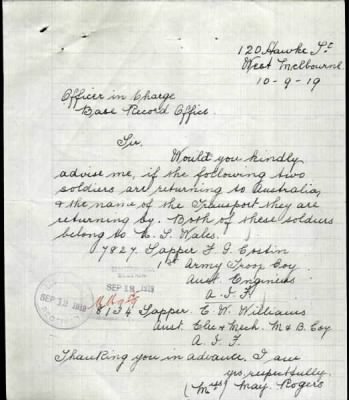 120 Hawke St
West Melbourne
10-9-19
Officer in Charge
Base Record Office.
Sir.
Would you kindly
advise me, if the following two
soldiers are returning to Australia,
& the name of the Transport they are
returning by. Both of these soldiers
belong to N. S. Wales.
7827. Sapper F. G. Costin
1st Army Troop Coy
Aust. Engineers
A. I. F.
SEP 12 1919
SEP 12 1919
8134 Sapper. E. W. Williams
Aust. Elec & Mech. M & B. Coy
A. I. F.
Thanking you in advance. I am
yrs respectfully.
(Mrs) May Rogers